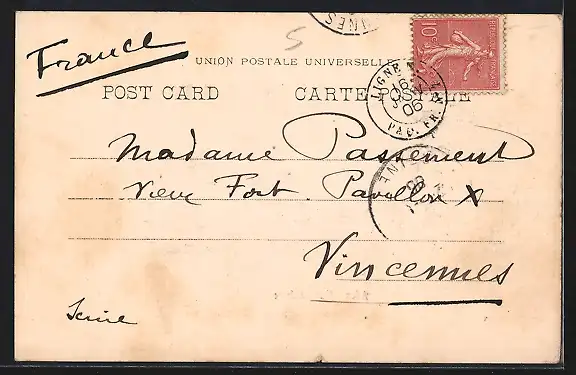 France
5
UNION POSTALE UNIVERSELLE
POST CARD CARTE POSTALE
10
LIGNE
16
06
PAQ. FR.
Madame Passement
Vieux Fort. Pavillon X
Vincennes
Seine